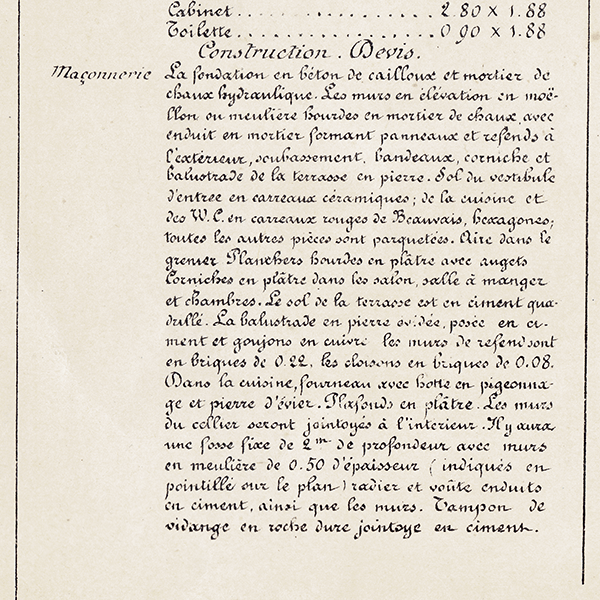 Cabinet.................2.80 X 1.88
Toilette.................0 90 X 1.88
Construction. Devis.
Maçonnerie La fondation en béton de cailloux et mortier de
chaux hydraulique. Les murs en élévation en moë-
llon ou meulière hourdes en mortier de chaux, avec
enduit en mortier formant panneaux et refends à
l'extérieur, soubassement, bandeaux, corniche et
balustrade de la terrasse en pierre. Sol du vestibule
d'entree en carreaux céramiques; de la cuisine et
des W.C. en carreaux rouges de Beauvais, hexagones;
toutes les autres pièces sont parquetées. Aire dans le
grenier Planchers hourdes en plâtre avec augets
Corniches en plâtre dans les salon, salle à manger
et chambres. Le sol de la terrasse est en ciment qua-
drillé. La balustrade en pierre evidée, posée en ci-
ment et goujons en cuivre les murs de refend sont
en briques de 0.22, les cloisons en briques de 0.08.
Dans la cuisine, fourneau avec hotte en pigeonna-
ge et pierre d'évier. Plafonds en plâtre. Les murs
du cellier seront jointoyés à l'interieur. Il y aura
une fosse fixe de 2m de profondeur avec murs
en meulière de 0.50 d'épaisseur (indiqués en
pointillé sur le plan) radier et voûte enduits
en ciment, ainsi que les murs. Tampon de
vidange en roche dure jointoye en ciment.